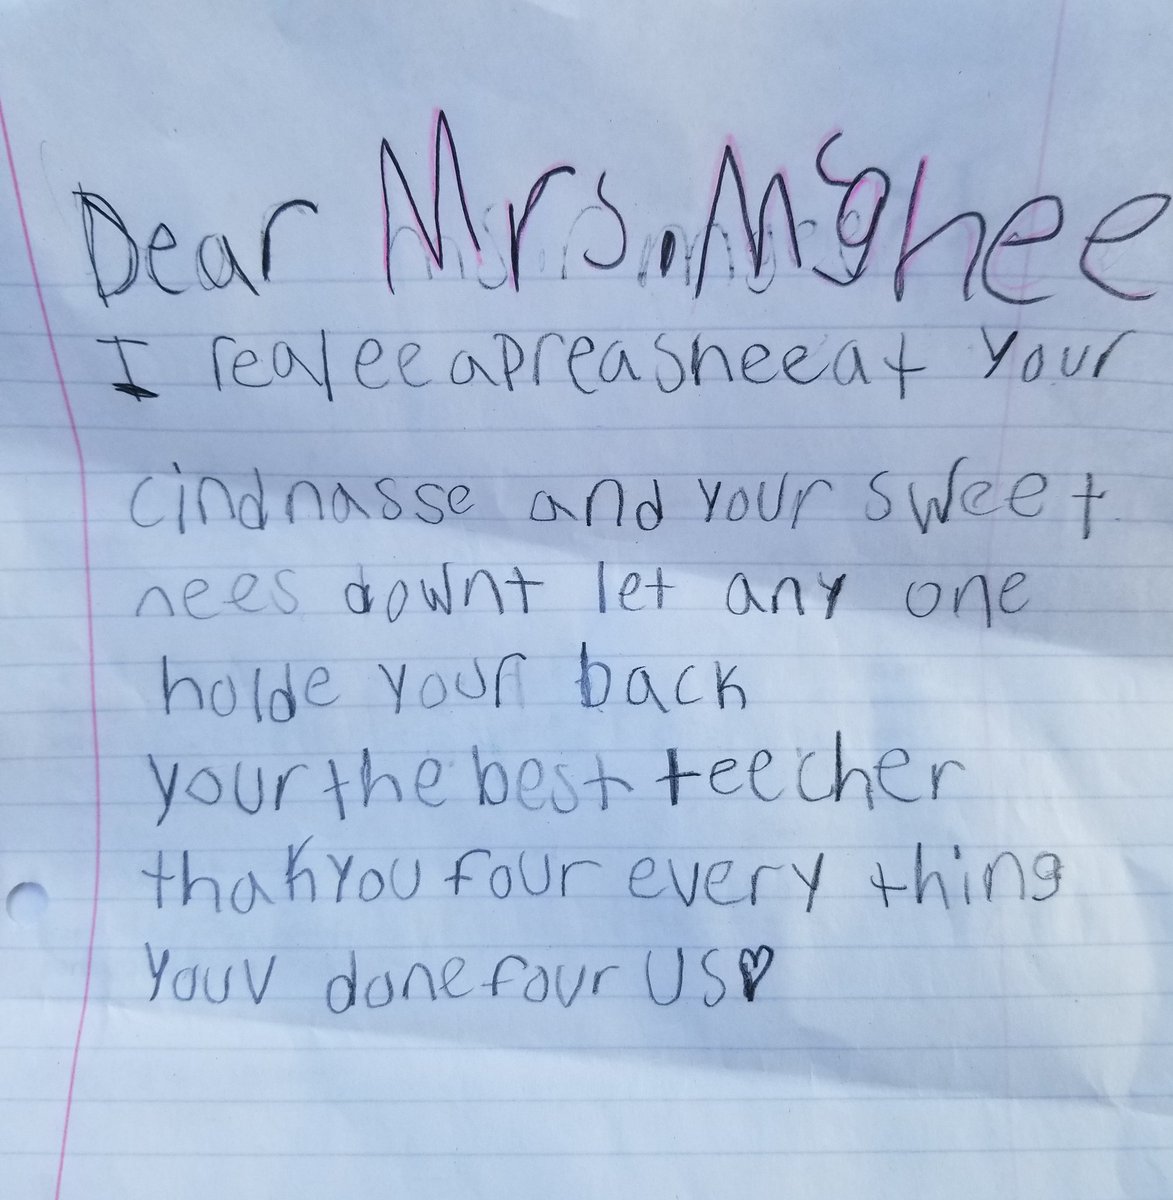 Dear Mrs. McGhee
I realee apreasheeat your
cindnasse and your sweet
nees downt let any one
holde your back
your the best teecher
thankyou four every thing
youv done four us♡